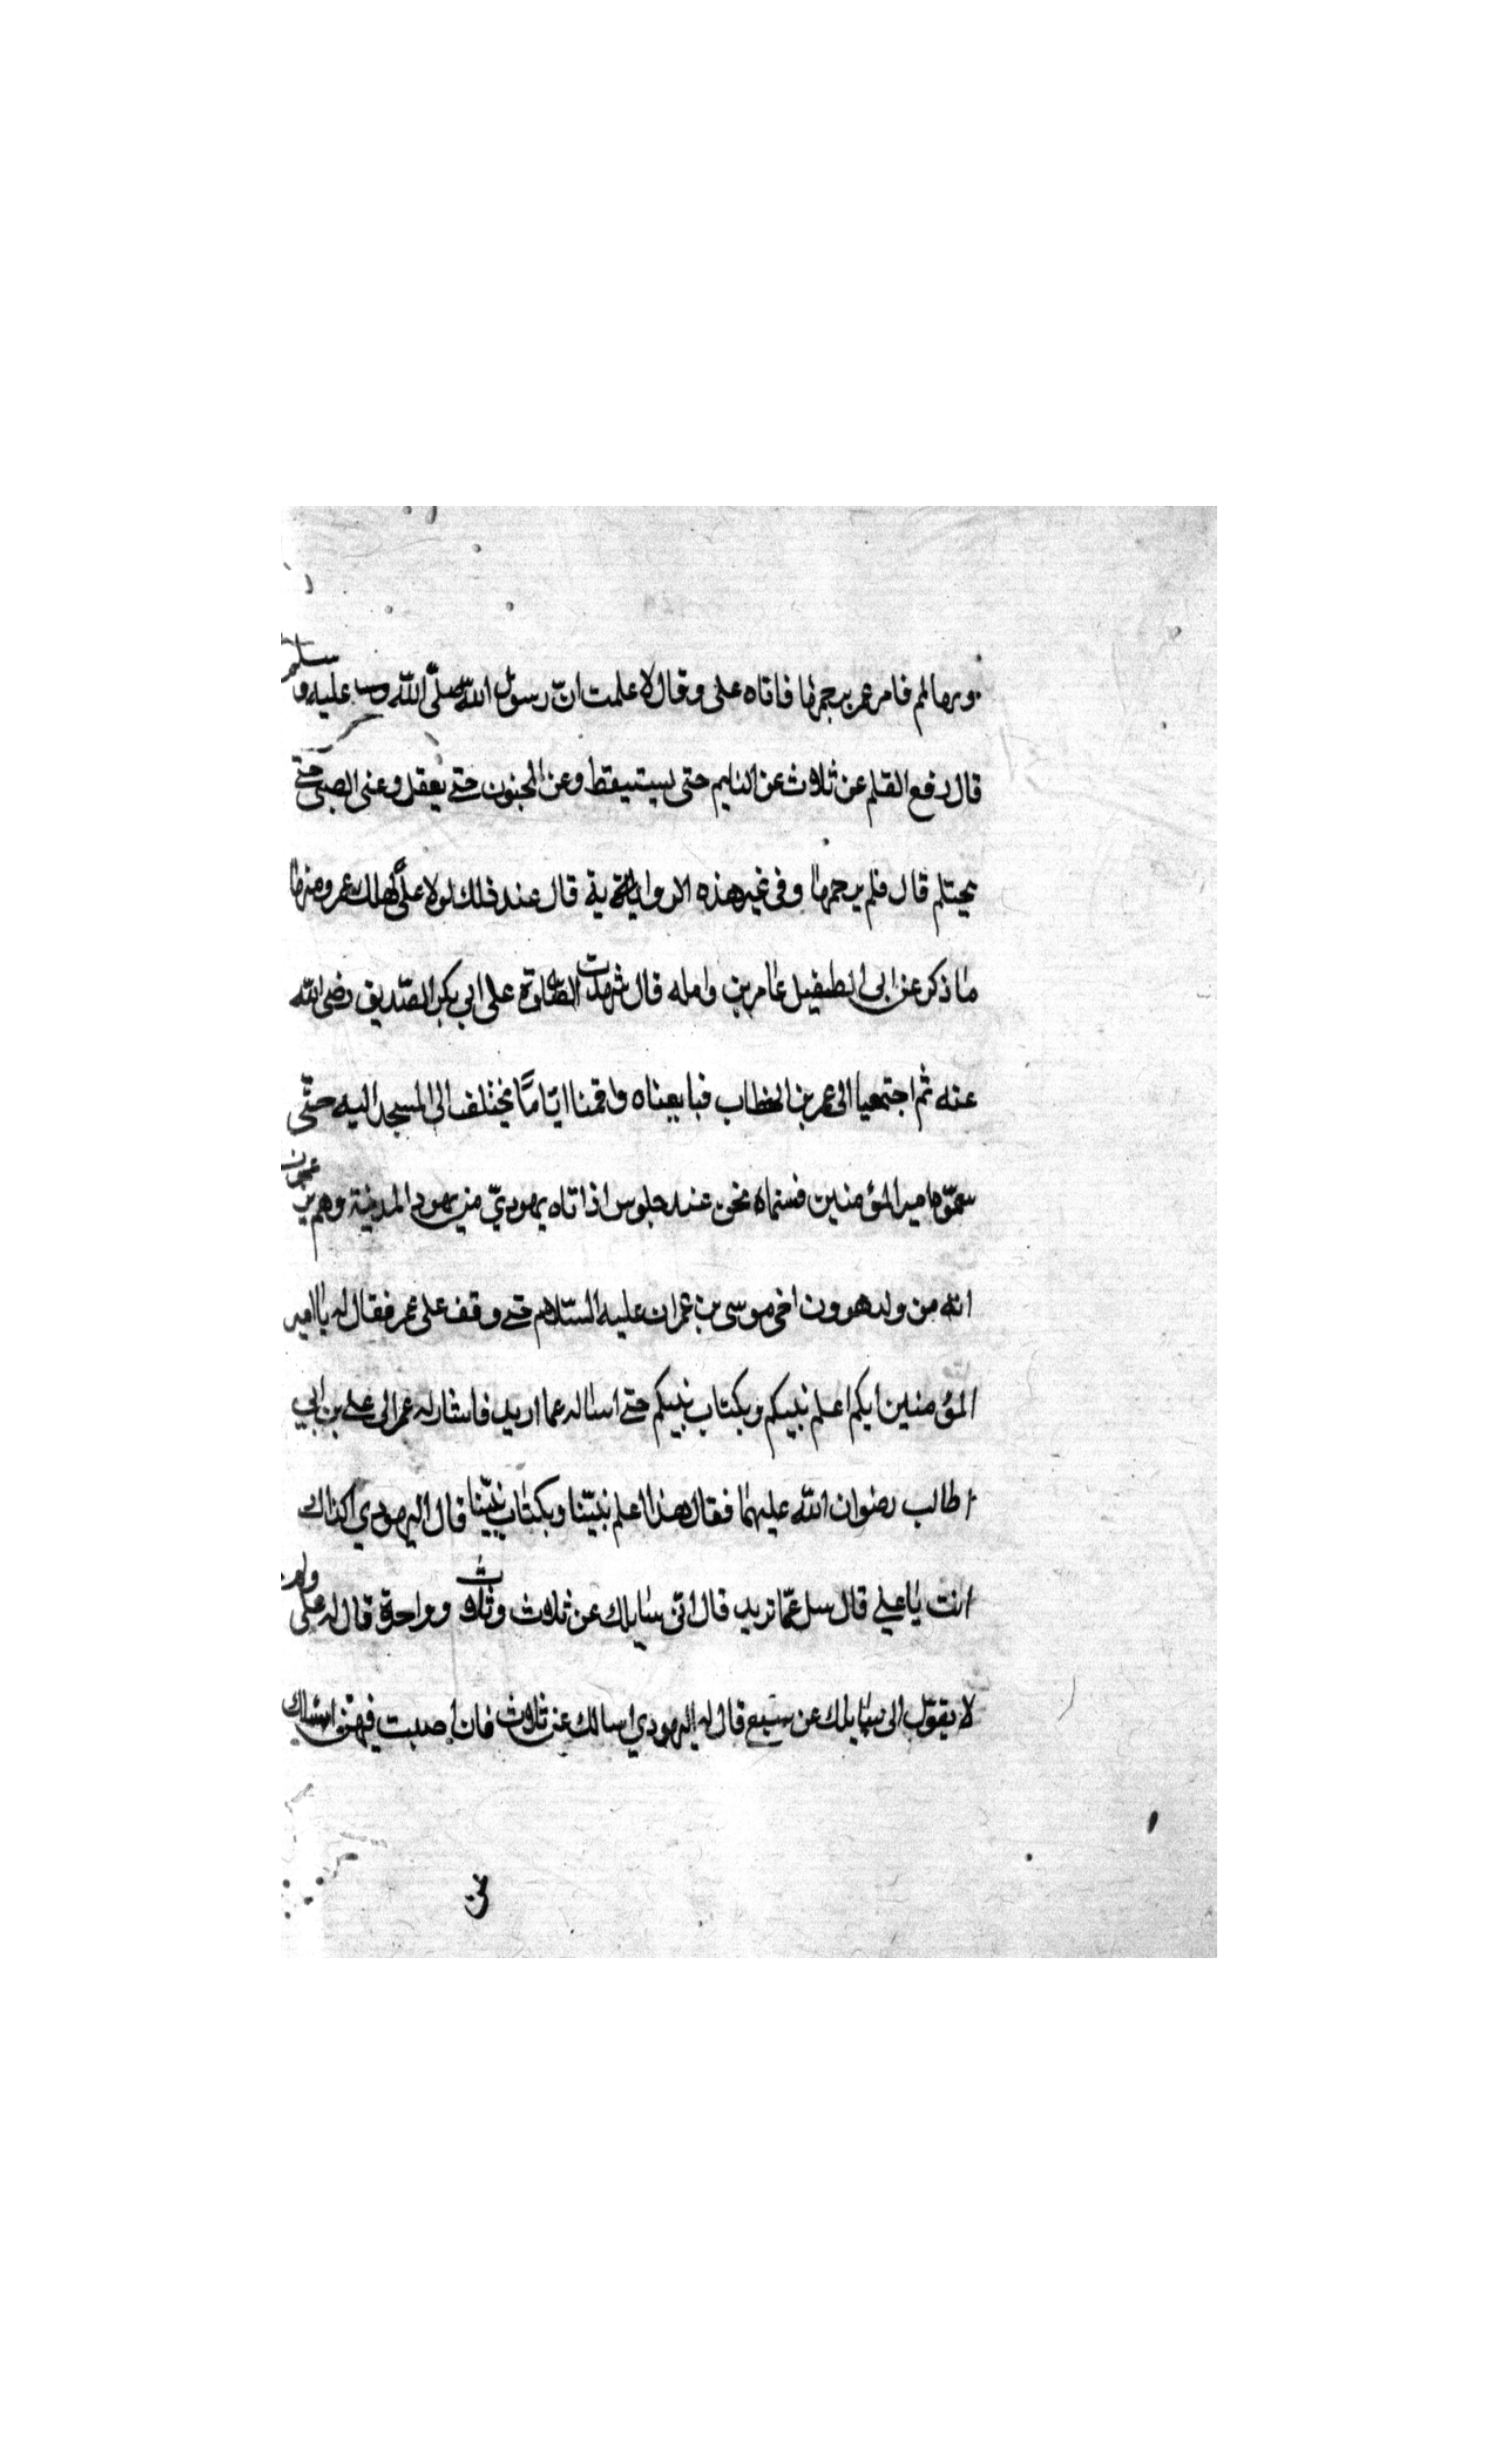 وبها لمم فامر عمر برجمها فاتاه على وقال لا علمت انّ رسول الله صلّى الله عليه وسلم
قال رفع القلم عن ثلاث عن النايم حتى يستيقظ وعن المجنون حتى يعقل وعن الصبى حتى
يحتلم قال فلم يرجمها وفى غير هذه الرواية قال عند ذلك لولا علىّ لهلك عمر ومنها
ما ذكر عن ابى الطفيل عامر بن وامله قال شهدت الصلاة على ابى بكر الصّديق رضى الله
عنه ثم اجتمعيا الى عمر بن الخطاب فبايعناه واقمنا ايّامًا نختلف الى المسجد اليه حتّى
سمّوه امير المؤمنين فبينماه نحن عنده جلوس اذ اتاه يهوديّ من يهود المدينة وهم يزعمون
انّه من ولد هرون اخى موسى بن عمران عليه السّلام حتى وقف على عمر فقال له يا امير
المؤمنين ايكم اعلم نبيكم وبكتاب نبيكم حتى اساله عما اريد فاشار له عمر الى على بن ابي
طالب رضوان الله عليهما فقال هذا اعلم نبيّنا وبكتاب نبيّنا قال اليهودي اكذاك
انت يا علي قال سل عمّا تريد قال انّى سايلك عن ثلاث وثلاث وواحدة قال له على ولم
لا يقول انى سايلك عن سبع قال له اليهودي اسالك عن ثلاث فان اصبت فيهنّ اسئلك
عن